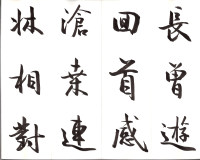 長曾遊
回首感
滄桑連
牀相對